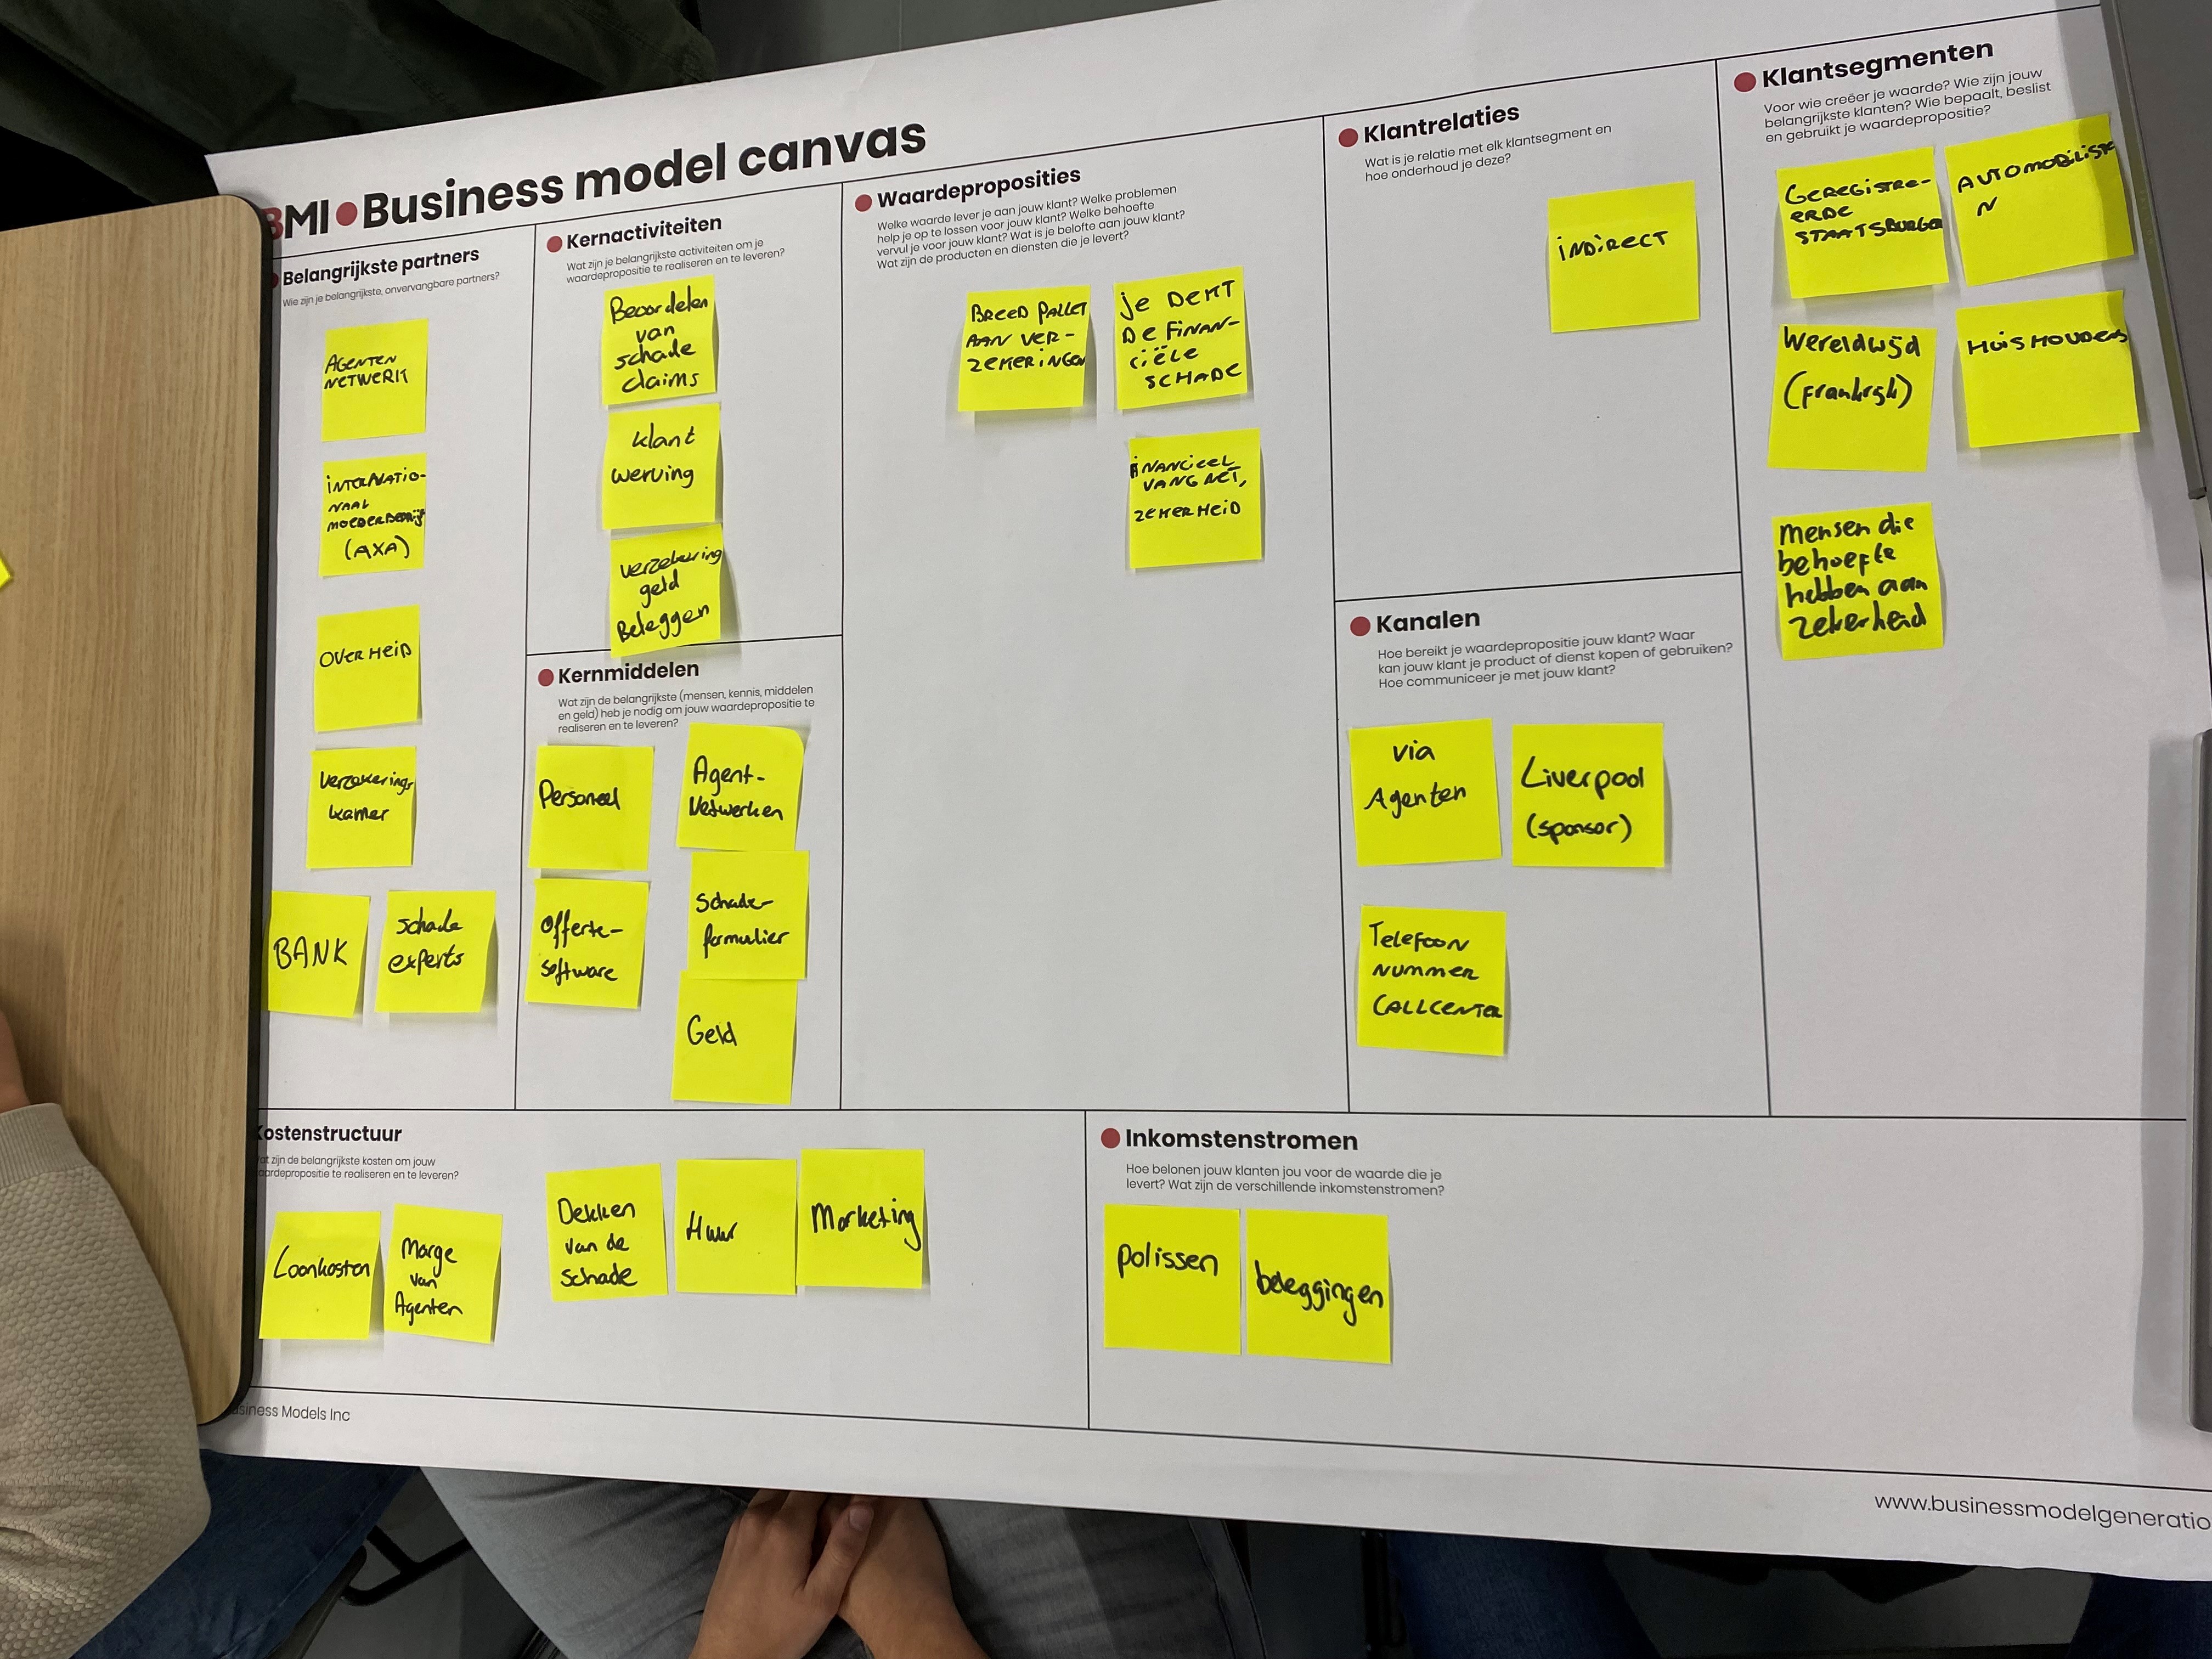 BMI Business model canvas
Belangrijkste partners
Wie zijn je belangrijkste, onvervangbare partners?
AGENTEN
NETWERK
INTERNATIO-
NAAL
MOEDERBEDRIJF
(AXA)
OVERHEID
Verzekerings
kamer
BANK
schade
experts
Kernactiviteiten
Wat zijn je belangrijkste activiteiten om je
waardepropositie te realiseren en te leveren?
Beoordelen
van
schade
claims
klant
werving
verzekering
geld
Beleggen
Kernmiddelen
Wat zijn de belangrijkste (mensen, kennis, middelen
en geld) heb je nodig om jouw waardepropositie te
realiseren en te leveren?
Personeel
Agent-
Netwerken
Offerte-
software
Schade-
formulier
Geld
Waardeproposities
Welke waarde lever je aan jouw klant? Welke problemen
help je op te lossen voor jouw klant? Welke behoefte
vervul je voor jouw klant? Wat is je belofte aan jouw klant?
Wat zijn de producten en diensten die je levert?
BREED PALLET
AAN VER-
ZEKERINGEN
je DEKT
DE FINAN-
CIËLE
SCHADE
FINANCIEEL
VANGNET,
ZEKERHEID
Klantrelaties
Wat is je relatie met elk klantsegment en
hoe onderhoud je deze?
INDIRECT
Kanalen
Hoe bereikt je waardepropositie jouw klant? Waar
kan jouw klant je product of dienst kopen of gebruiken?
Hoe communiceer je met jouw klant?
via
Agenten
Liverpool
(sponsor)
Telefoon
nummer
CALLCENTER
Klantsegmenten
Voor wie creëer je waarde? Wie zijn jouw
belangrijkste klanten? Wie bepaalt, beslist
en gebruikt je waardepropositie?
GEREGISTRE-
ERDE
STAATSBURGER
AUTOMOBILISTE
N
Wereldwijd
(Frankrijk)
HUISHOUDENS
Mensen die
behoefte
hebben aan
zekerheid
Kostenstructuur
at zijn de belangrijkste kosten om jouw
aardepropositie te realiseren en te leveren?
Loonkosten
Marge
van
Agenten
Dekken
van de
schade
Huur
Marketing
Inkomstenstromen
Hoe belonen jouw klanten jou voor de waarde die je
levert? Wat zijn de verschillende inkomstenstromen?
polissen
beleggingen
usiness Models Inc
www.businessmodelgeneratio